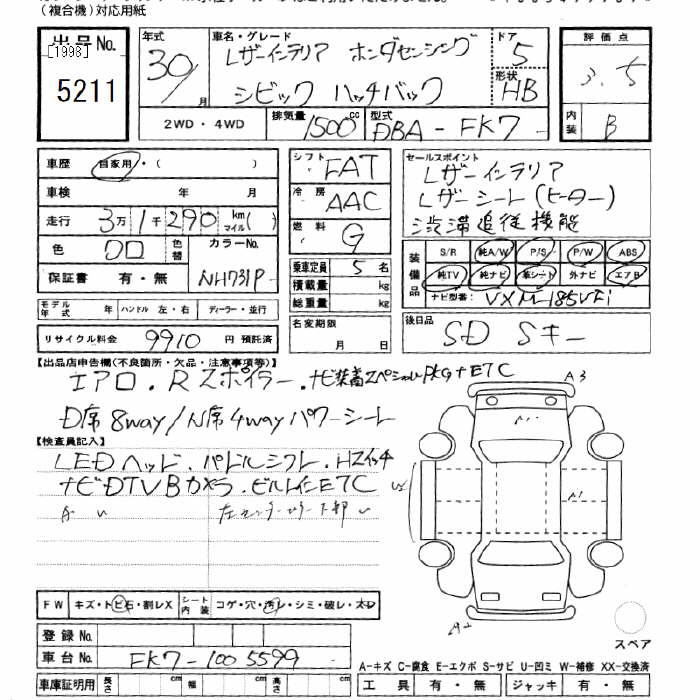 (複合機)対応用紙
出品No. [1998] 5211
年式 30/ 月
車名・グレード レザーインテリア ホンダセンシング
シビック ハッチバック
ドア 5
形状 HB
評価点 3.5
内装 B
2WD・4WD 排気量 1500 cc 型式 DBA-FK7
車歴 自家用・( )
車検 年 月
走行 3万1千290 km マイル( )
色 クロ 色替 カラーNo. NH731P
保証書 有・無
シフト FAT
冷房 AAC
燃料 G
乗車定員 5 名
積載量 kg
総重量 kg
名変期限 月 日
セールスポイント
レザーインテリア
レザーシート(ヒーター)
渋滞追従機能
装備品 S/R 純A/W P/S P/W ABS
純TV 純ナビ 革シート 外ナビ エアB
ナビ型番: VXM-185VFi
後日品 SD Sキー
モデル年式 年 ハンドル 左・右 ディーラー・並行
リサイクル料金 9910 円 預託済
【出品店申告欄(不良箇所・欠品・注意事項等)】
エアロ.Rスポイラー.ナビ装着スペシャルPKG+ETC
D席8way/N席4wayパワーシート
【検査員記入】
LEDヘッド.パドルシフト.Hスイッチ
ナビDTVBカメラ.ビルトインETC
A3
A1
A2
FW キズ・トビ石・割レX シート内装 コゲ・穴・汚レ・シミ・破レ・スレ
登録No.
車台No. FK7-1005599
車庫証明用 長さ cm 幅 cm 高さ cm
スペア
A-キズ C-腐食 E-エクボ S-サビ U-凹ミ W-補修 XX-交換済
工具 有・無 ジャッキ 有・無